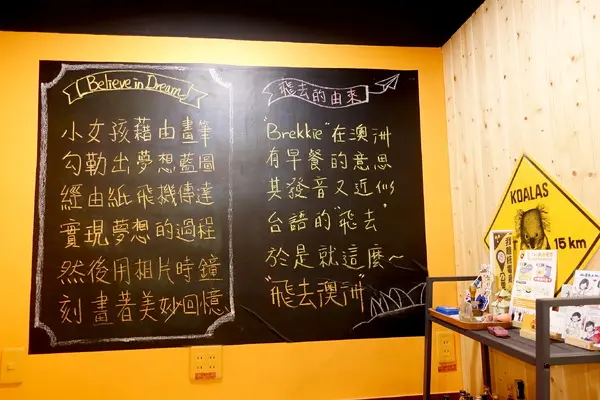 Believe in Dream
小女孩藉由畫筆
勾勒出夢想藍圖
經由紙飛機傳達
實現夢想的過程
然後用相片時鐘
刻畫著美妙回憶
飛去的由來
"Brekkie"在澳洲
有早餐的意思
其發音又近似
台語的"飛去"
於是就這麼～
"飛去澳洲"
KOALAS
15 km